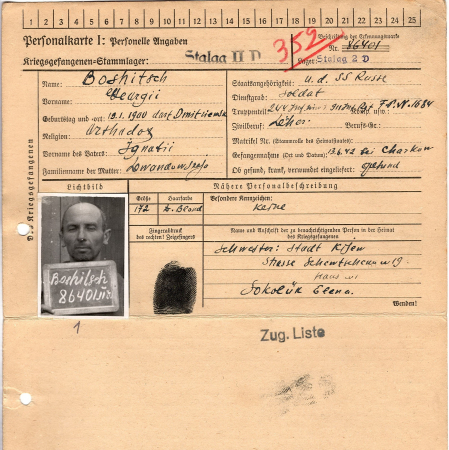 1 2 3 4 5 6 7 8 9 10 11 12 13 14 15 16 17 18 19 20 21 22 23 24 25
Personalkarte I: Personelle Angaben
Kriegsgefangenen-Stammlager: Stalag II D
359
Beschriftung der Erkennungsmarke
Nr. 86401
Lager: Stalag 2 D
Des Kriegsgefangenen
Name: Boshitsch
Vorname: Georgii
Geburtstag und -ort: 19.1.1900
Religion: Orthodox
Vorname des Vaters: Ignatii
Familienname der Mutter:
Staatsangehörigkeit: U.d.SS Russe
Dienstgrad: Soldat
Truppenteil: Komp. usw.:
Zivilberuf: Berufs-Gr.:
Matrikel Nr. (Stammrolle des Heimatstaates):
Gefangennahme (Ort und Datum): 13.6.42 bei Charkow
Ob gesund, krank, verwundet eingeliefert: gesund
Lichtbild
Nähere Personalbeschreibung
Größe
Haarfarbe
Besondere Kennzeichen:
172
d. Blond
Keine
Fingerabdruck
des rechten! Zeigefingers
Name und Anschrift der zu benachrichtigenden Person in der Heimat
des Kriegsgefangenen
Schwester: Stadt Kijew
Strasse 19
Haus
Sokoliuk Elena.
Wenden!
Boshitsch
86401 IID
1
Zug. Liste